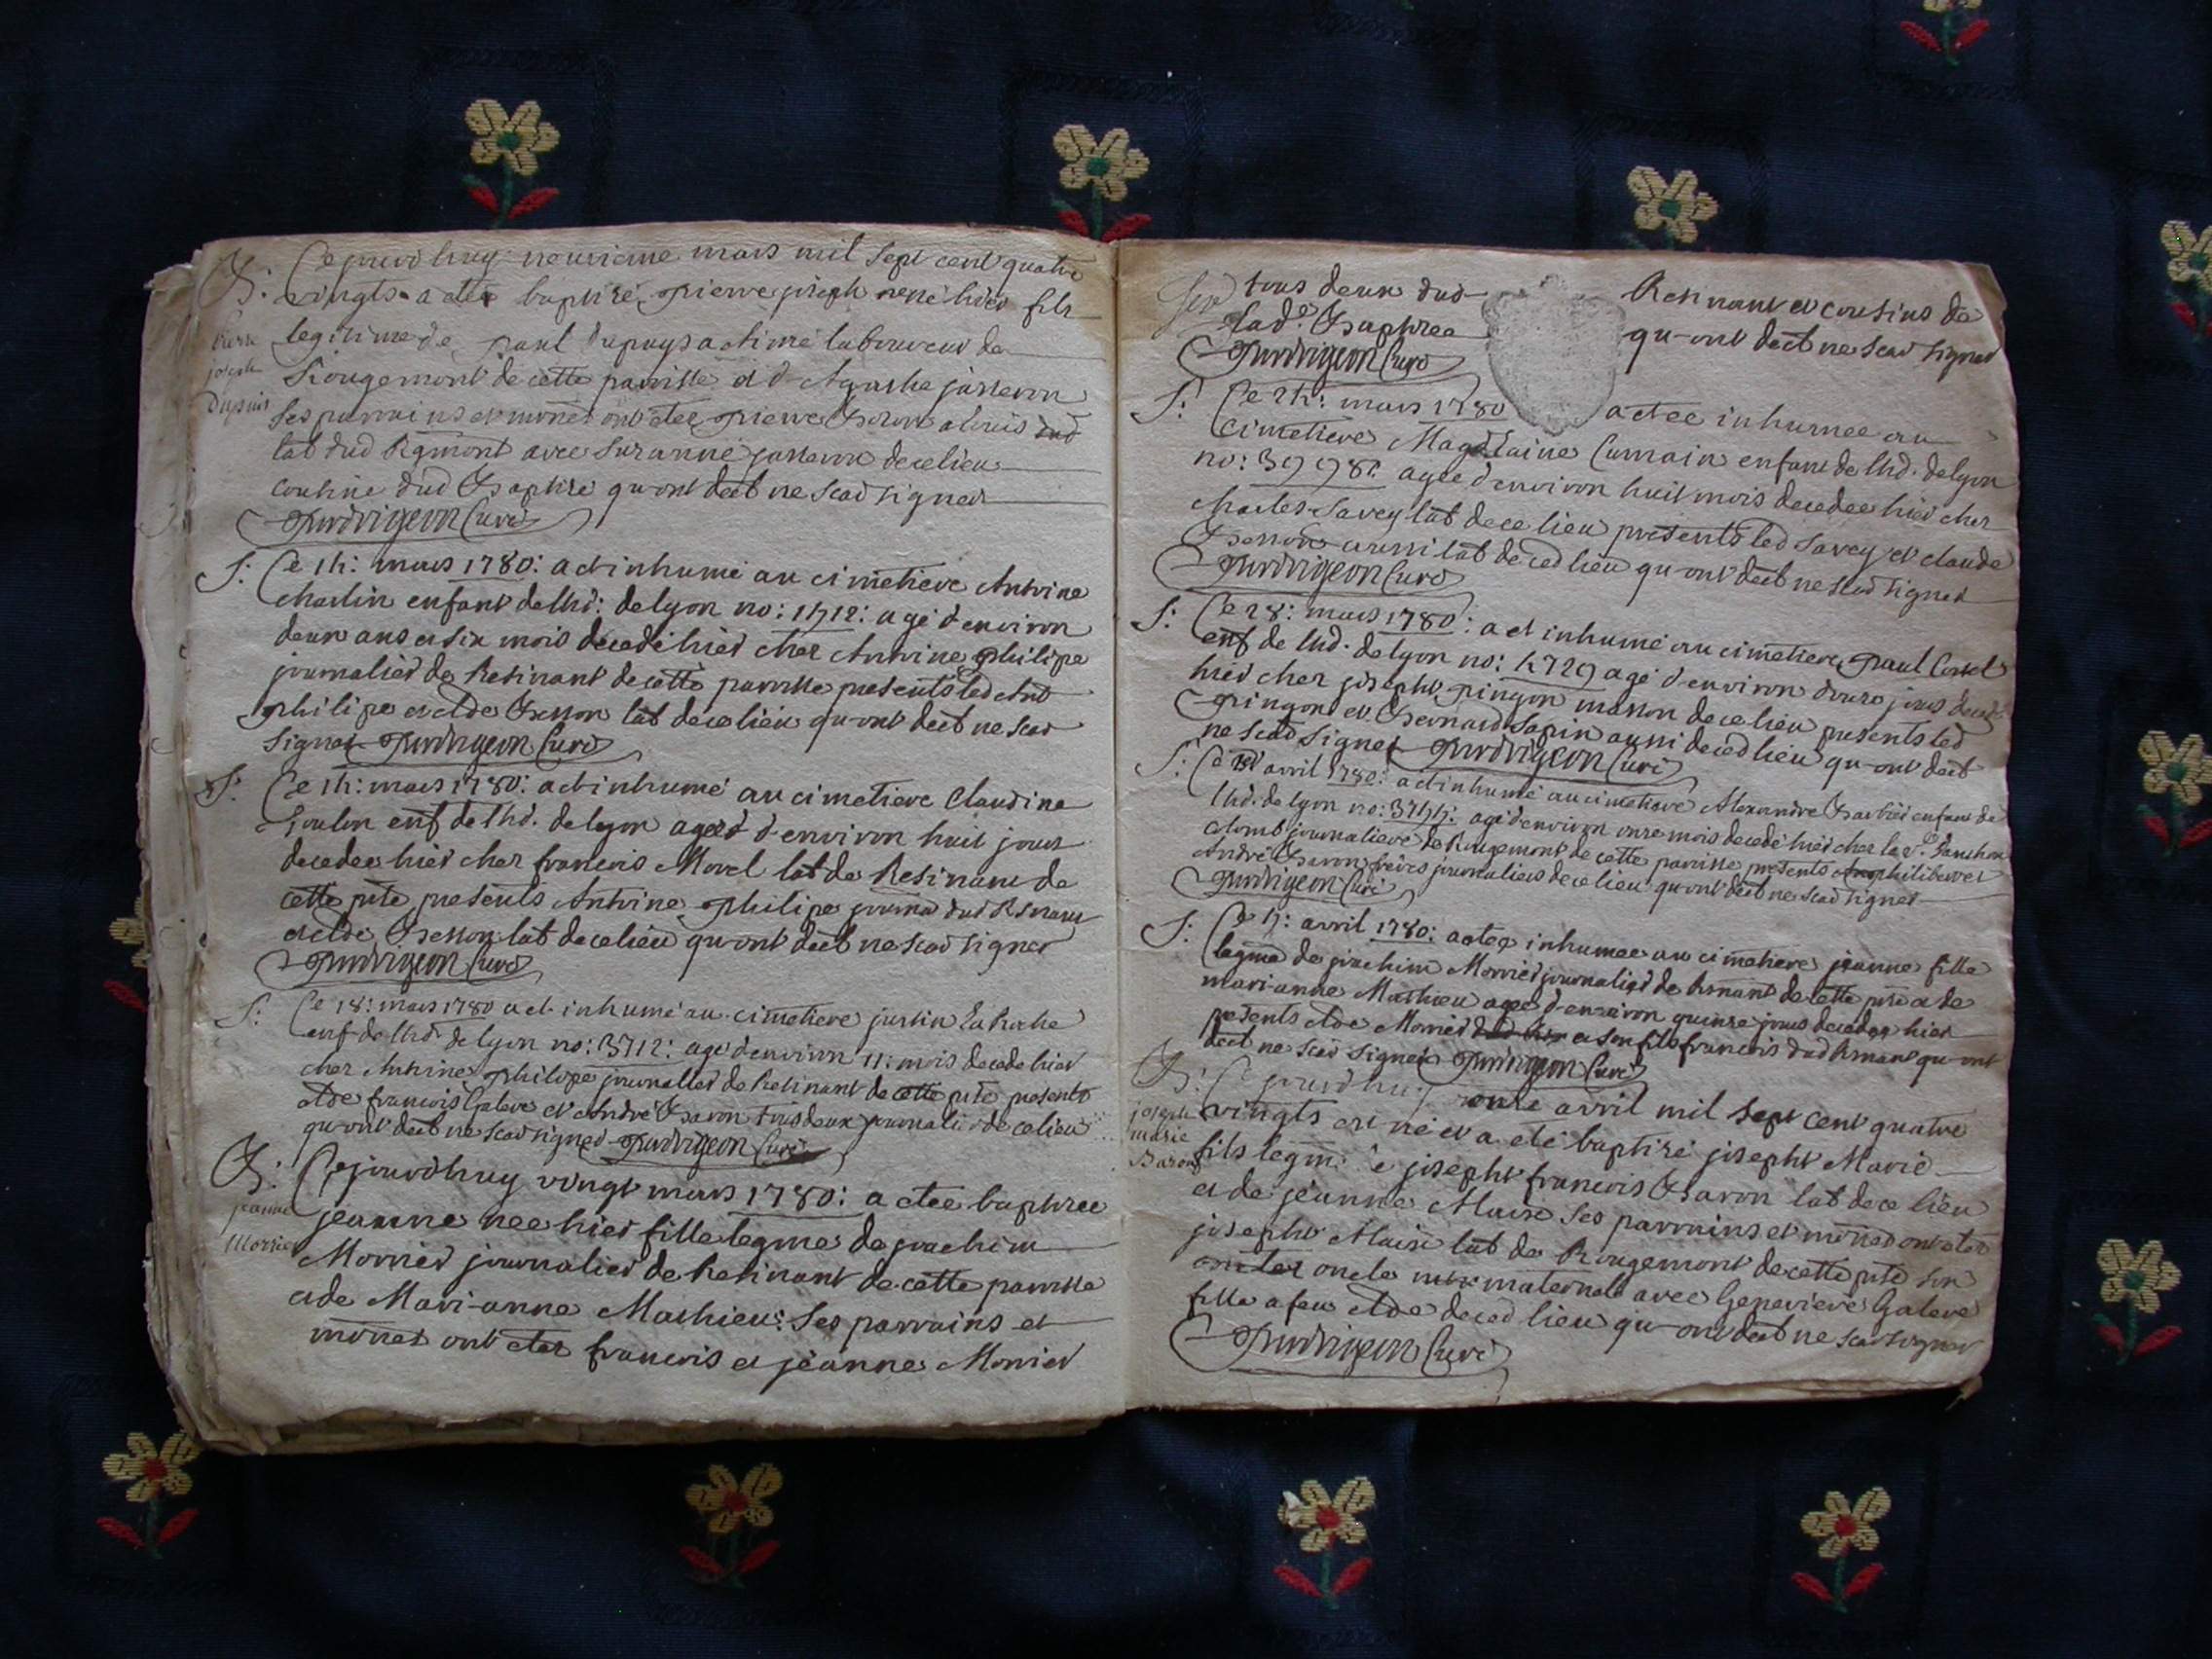 B: Ce jourdhuy neuvieme mars mil sept cent quatre
vingts a etée baptisé pierre joseph né hier fils
legitime de paul dupuys actimé laboureur de
pierre joseph dupuis
Rougemont de cette parroisse et d Agathe jasseron
ses parrains et mòné ont etee pierre Baron
lab dud Rgmont avec suzanne jasseron de ce lieu
cousine dud Baptisé qu-ont decl ne scav signer
curé
S: Ce 14: mars 1780: a et inhumé au cimetiere Antoine
charlin enfant de lhd: de lyon no: 1712: agé d environ
deux ans et six mois decedé hier chez Antoine philipe
journalier de Resinant de cette parroisse presents led Ant
philipe et clde Besson lab de ce lieu qu-ont decl ne scav
signer curé
S: Ce 14: mars 1780: a et inhumé au cimetiere Claudine
enf de lhd. de lyon ageé d environ huit jours
decedee hier chez francois Morel lab de Resinant de
cette psse presents Antoine philipe journa dud Rsnant
et clde Besson lab de ce lieu qu-ont decl ne scav signer
curé
S: Ce 18: mars 1780 a et inhumé au cimetiere justin La Roche
enf de lhd de lyon no: 3712: agé d environ 11: mois decede hier
chez Antoine philipe journalier de Resinant de cette psse presents
clde francois Galere et André Baron tous deux journali de ce lieu
qu-ont decl ne scav signer curé
B: Ce jourdhuy vingt mars 1780: a etee baptisee
jeanne Morrier
jeanne nee hier fille legme de joachim
Morrier journalier de Resinant de cette parroisse
et de Mari-anne Mathieu: ses parrains et
mònes ont etes francois et jeanne Morrier
tous deux dud Resinant et cousins de
lad. Baptisee qu-ont decl ne scav signer
curé
S: Ce 24: mars 1780 a etee inhumee au
cimetiere Magdelaine Cumain enfant de lhd. de lyon
no: agee d environ huit mois decedee hier chez
charles Savey lab de ce lieu presents led Savey et claude
Besson aussi lab de ced lieu qu-ont decl ne scav signer
curé
S: Ce 28: mars 1780: a et inhumé au cimetiere paul
enf de lhd. de lyon no: 4729 agé d environ douze jours deced
hier chez joseph pingon masson de ce lieu presents led
pingon et Bernard Sapin aussi de ced lieu qu-ont decl
ne scav signer curé
S: Ce avril 1780: a et inhumé au cimetiere Alexandre Barbier enfant de
lhd. de lyon no: agé d environ onze mois decedé hier chez la
colomb journaliere de Rougemont de cette parroisse presents philibert et
André Baron freres journaliers de ce lieu qu-ont decl ne scav signer
curé
S: Ce avril 1780: a etee inhumee au cimetiere jeanne fille
legme de joachim Morrier journalier de Rsnant de cette psse et de
mari-anne Mathieu agee d environ quinze jours decedee hier
presents clde Morrier et son fils francois dud Rsnant qu-ont
decl ne scav signer curé
B: Ce jourdhuy onze avril mil sept cent quatre
joseph marie Baron
vingts est né et a eté baptisé joseph Marie
fils legm: de joseph francois Baron lab de ce lieu
et de jeanne Maise ses parrains et mònes ont etes
joseph Maise lab de Rougemont de cette psse son
oncle maternel avec Genevieve Galere
fille a feu clde de ced lieu qu-ont decl ne scav signer
curé